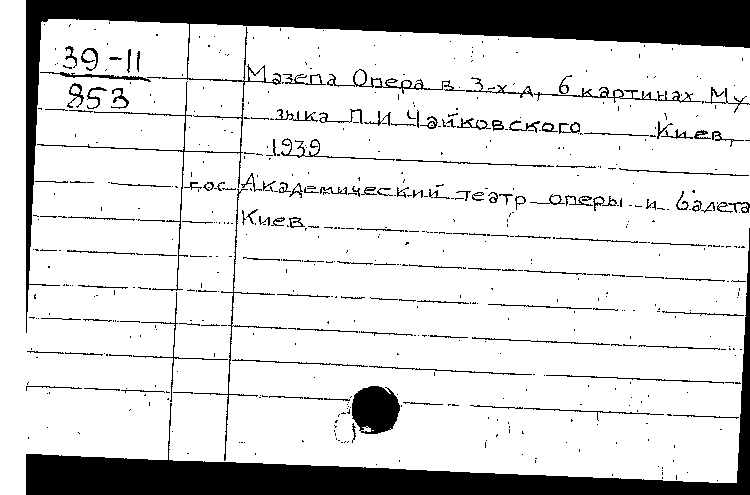 39-II
853
Мазепа Опера в 3-х д, 6 картинах Му
зыка П.И Чайковского Киев,
1939
гос Академический театр оперы и балета
Киев